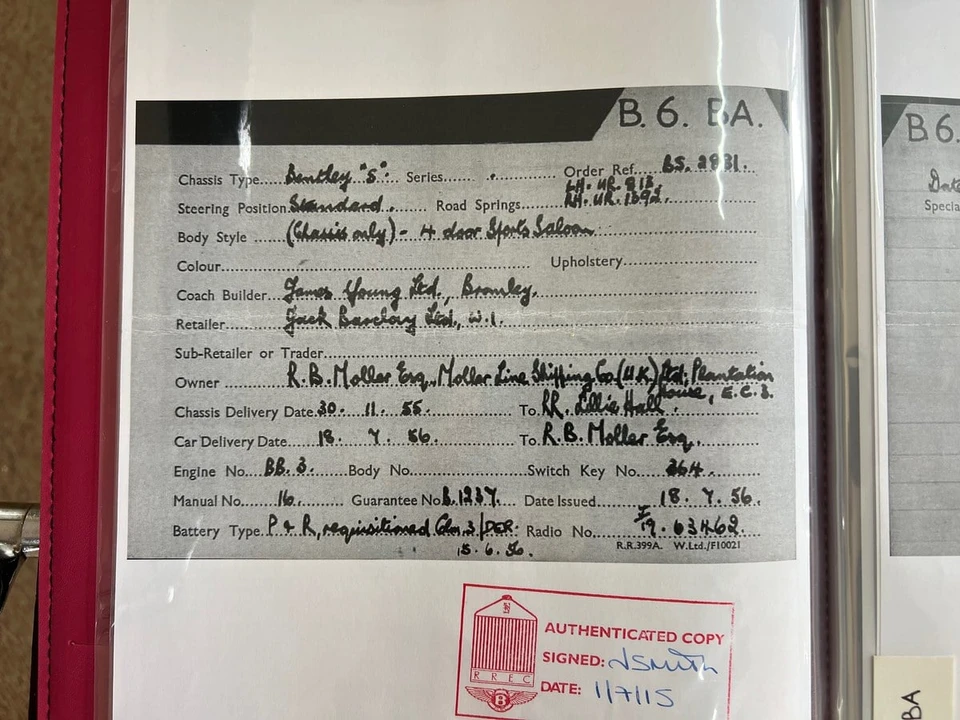 B. 6. BA.
Chassis Type....Bentley "S".. Series...... . Order Ref....BS. 2831.
LH. UR. 913.
Steering Position Standard. Road Springs.........RH. UR. 1392.
Body Style ....(Chassis only) - 4 door Sports Saloon
Colour.......... Upholstery..........
Coach Builder...James Young Ltd., Bromley.
Retailer....Jack Barclay Ltd., W.1.
Sub-Retailer or Trader..........
Owner ........R.B. Moller Esq., Moller Line Shipping Co (U.K) Ltd, Plantation
House, E.C.3.
Chassis Delivery Date. 30. 11. 55. To RR. Lillie Hall.
Car Delivery Date.....18. 7. 56. To R.B. Moller Esq.
Engine No...BB. 3. Body No.......... Switch Key No. 264.
Manual No....16. Guarantee No B.1237. Date Issued....18. 7. 56.
Battery Type P & R, requisitioned Radio No. 19. 63462.
15. 6. 56. R.R.399A. W.Ltd./F10021
AUTHENTICATED COPY
SIGNED: JSmith
RREC
B
DATE: 1/7/15
B 6.
Date
Specia
BA